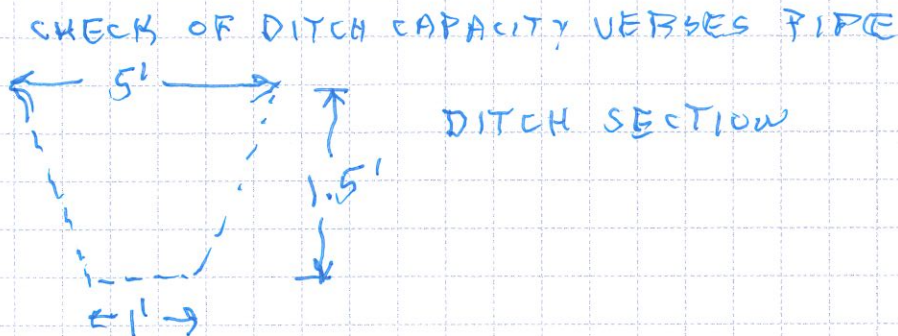 CHECK OF DITCH CAPACITY VERSES PIPE
5'
DITCH SECTION
1.5'
1'